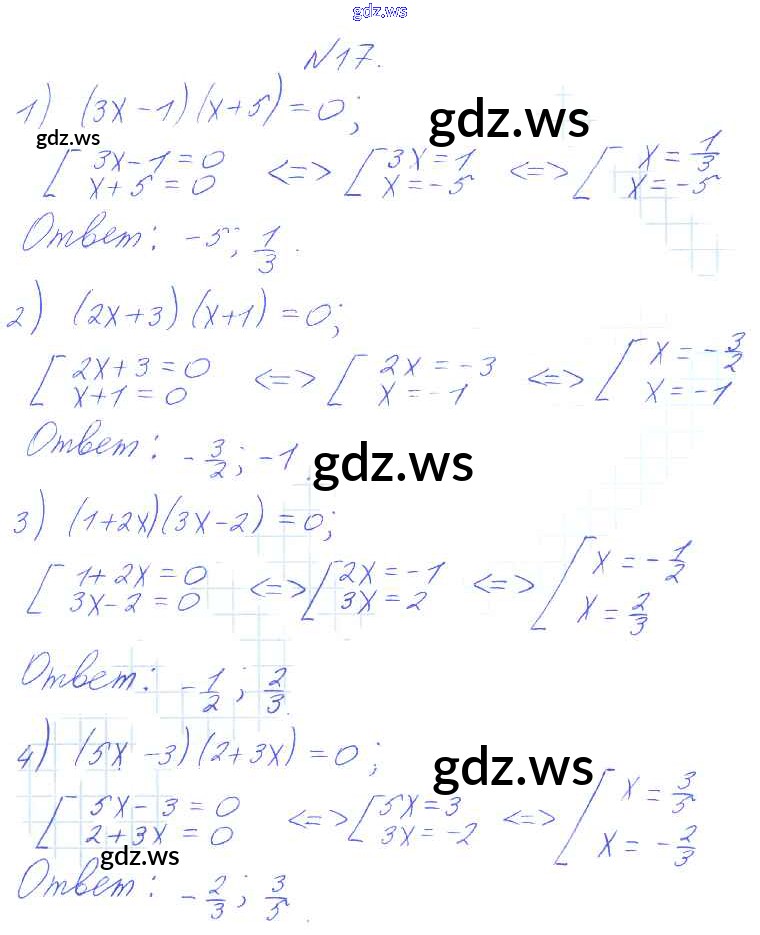 gdz.ws
№17.
1) (3x-1)(x+5)=0;
gdz.ws
gdz.ws
[ 3x-1=0 <=> [ 3x=1 <=> [ x=1/3
x+5=0 x=-5 x=-5
Ответ: -5; 1/3.
2) (2x+3)(x+1)=0;
[ 2x+3=0 <=> [ 2x=-3 <=> [ x=-3/2
x+1=0 x=-1 x=-1
Ответ: -3/2; -1.
gdz.ws
3) (1+2x)(3x-2)=0;
[ 1+2x=0 <=> [ 2x=-1 <=> [ x=-1/2
3x-2=0 3x=2 x=2/3
Ответ: -1/2; 2/3.
4) (5x-3)(2+3x)=0;
gdz.ws
[ 5x-3=0 <=> [ 5x=3 <=> [ x=3/5
2+3x=0 3x=-2 x=-2/3
gdz.ws
Ответ: -2/3; 3/5.